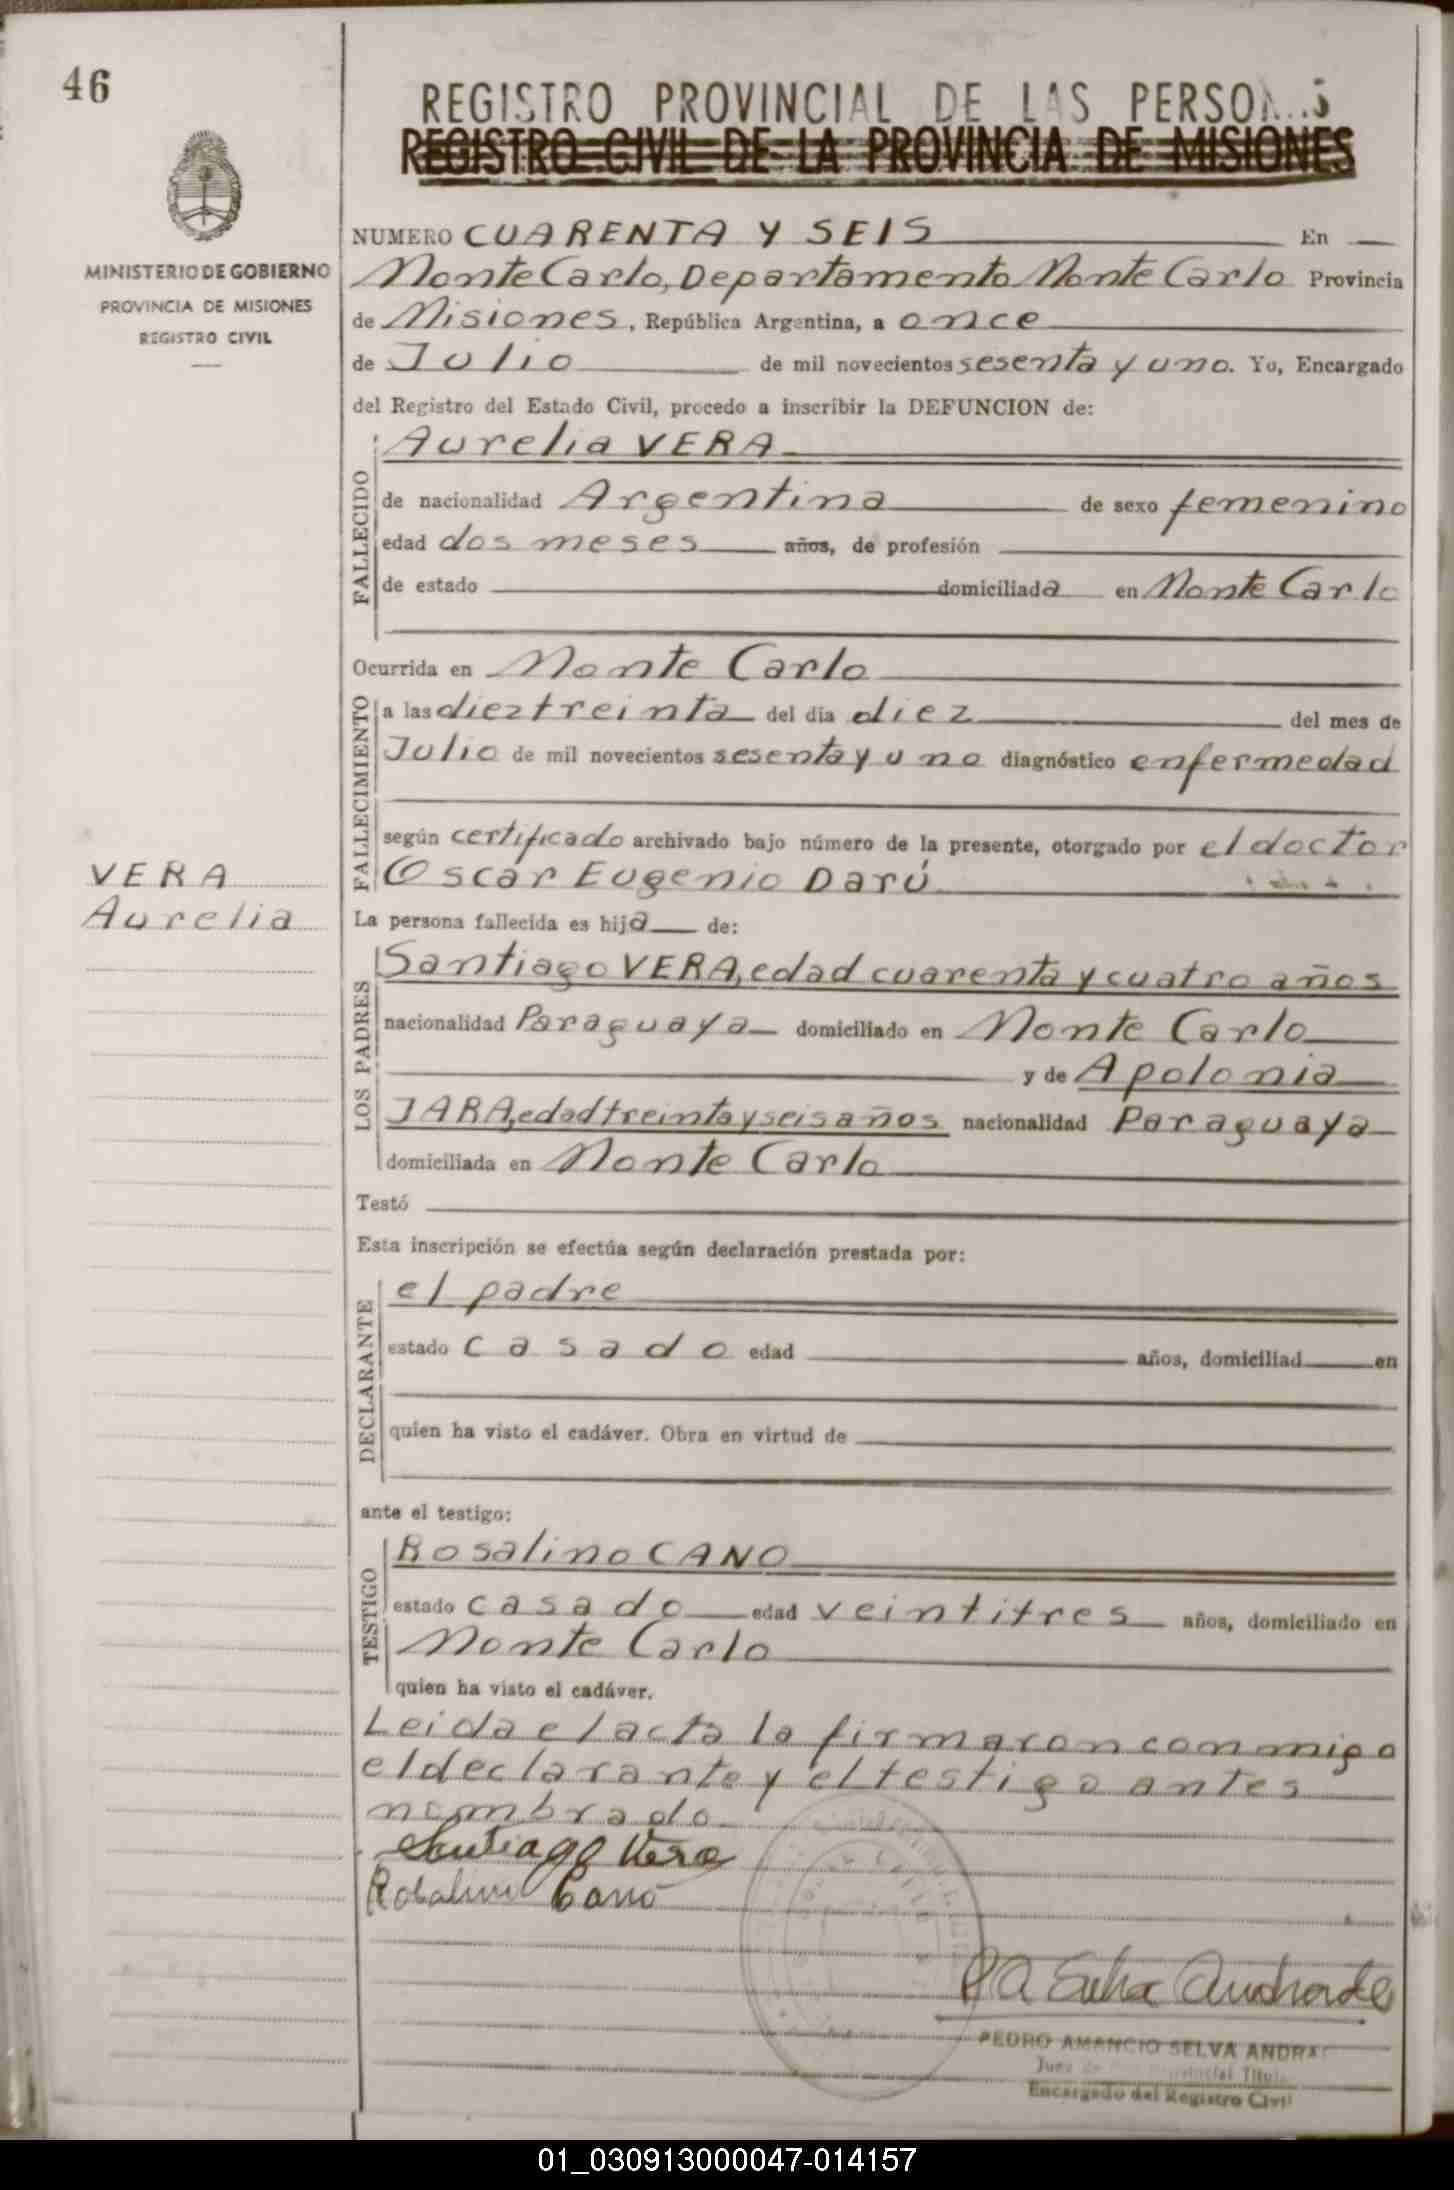 46
REGISTRO PROVINCIAL DE LAS
REGISTRO CIVIL DE LA PROVINCIA DE MISIONES
MINISTERIO DE GOBIERNO
PROVINCIA DE MISIONES
REGISTRO CIVIL
NUMERO CUARENTA Y SEIS En
Monte Carlo, Departamento Monte Carlo Provincia
de Misiones, República Argentina, a once
de Julio de mil novecientos sesenta y uno. Yo, Encargado
del Registro del Estado Civil, procedo a inscribir la DEFUNCION de:
FALLECIDO
Aurelia VERA
de nacionalidad Argentina de sexo femenino
edad dos meses años, de profesión
de estado domiciliada en Monte Carlo
Ocurrida en Monte Carlo
FALLECIMIENTO
a las diez treinta del día diez del mes de
Julio de mil novecientos sesenta y uno diagnóstico enfermedad
según certificado archivado bajo número de la presente, otorgado por el doctor
Oscar Eugenio Darú
VERA
Aurelia
La persona fallecida es hija de:
LOS PADRES
Santiago VERA, edad cuarenta y cuatro años
nacionalidad Paraguaya domiciliado en Monte Carlo
y de Apolonia
JARA, edad treinta y seis años nacionalidad Paraguaya
domiciliada en Monte Carlo
Testó
Esta inscripción se efectúa según declaración prestada por:
DECLARANTE
el padre
estado casado edad años, domiciliad en
quien ha visto el cadáver. Obra en virtud de
ante el testigo:
TESTIGO
Rosalino CANO
estado casado edad veintitres años, domiciliado en
Monte Carlo
quien ha visto el cadáver.
Leida el acta la firmaron conmigo
el declarante y el testigo antes
nombrado
Santiago Vera
Rosalino Cano
P A Selva Andrade
PEDRO AMANCIO SELVA
Juez de
Encargado del Registro Civil
01_030913000047-014157